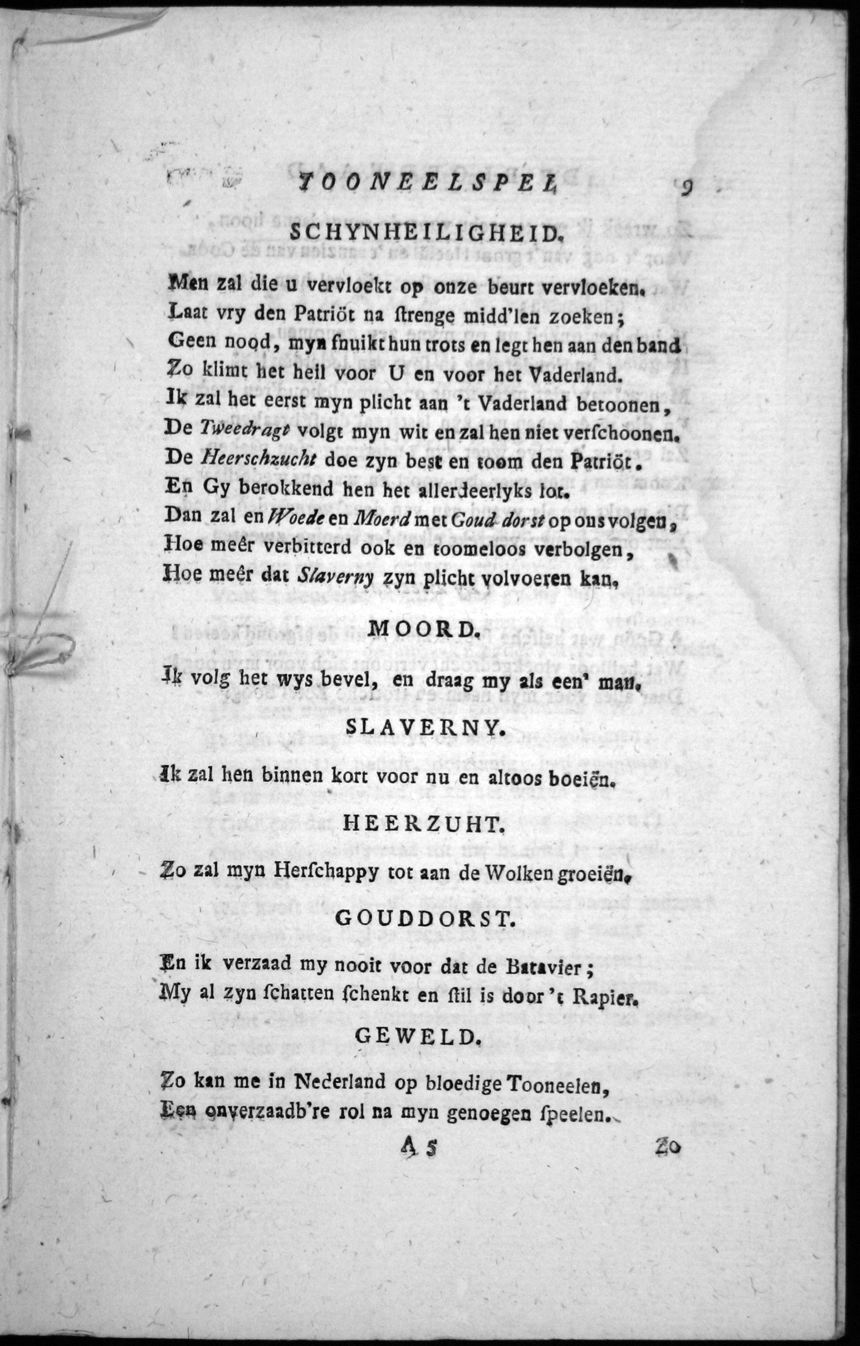 TOONEELSPEL 9
SCHYNHEILIGHEID.
Men zal die u vervloekt op onze beurt vervloeken.
Laat vry den Patriöt na ſtrenge midd'len zoeken;
Geen nood, myn ſnuikt hun trots en legt hen aan den band
Zo klimt het heil voor U en voor het Vaderland.
Ik zal het eerst myn plicht aan 't Vaderland betoonen,
De Tweedragt volgt myn wit en zal hen niet verſchoonen.
De Heerschzucht doe zyn best en toom den Patriöt.
En Gy berokkend hen het allerdeerlyks lot.
Dan zal en Woede en Moerd met Goud dorst op ons volgen,
Hoe meêr verbitterd ook en toomeloos verbolgen,
Hoe meêr dat Slaverny zyn plicht volvoeren kan,
MOORD.
Ik volg het wys bevel, en draag my als een' man.
SLAVERNY.
Ik zal hen binnen kort voor nu en altoos boeiën.
HEERZUHT.
Zo zal myn Herſchappy tot aan de Wolken groeiën,
GOUDDORST.
En ik verzaad my nooit voor dat de Batavier;
My al zyn ſchatten ſchenkt en ſtil is door 't Rapier.
GEWELD.
Zo kan me in Nederland op bloedige Tooneelen,
Een onverzaadb're rol na myn genoegen ſpeelen.
A 5 Zo